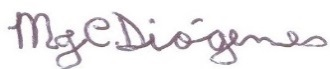 MgCDiógenes